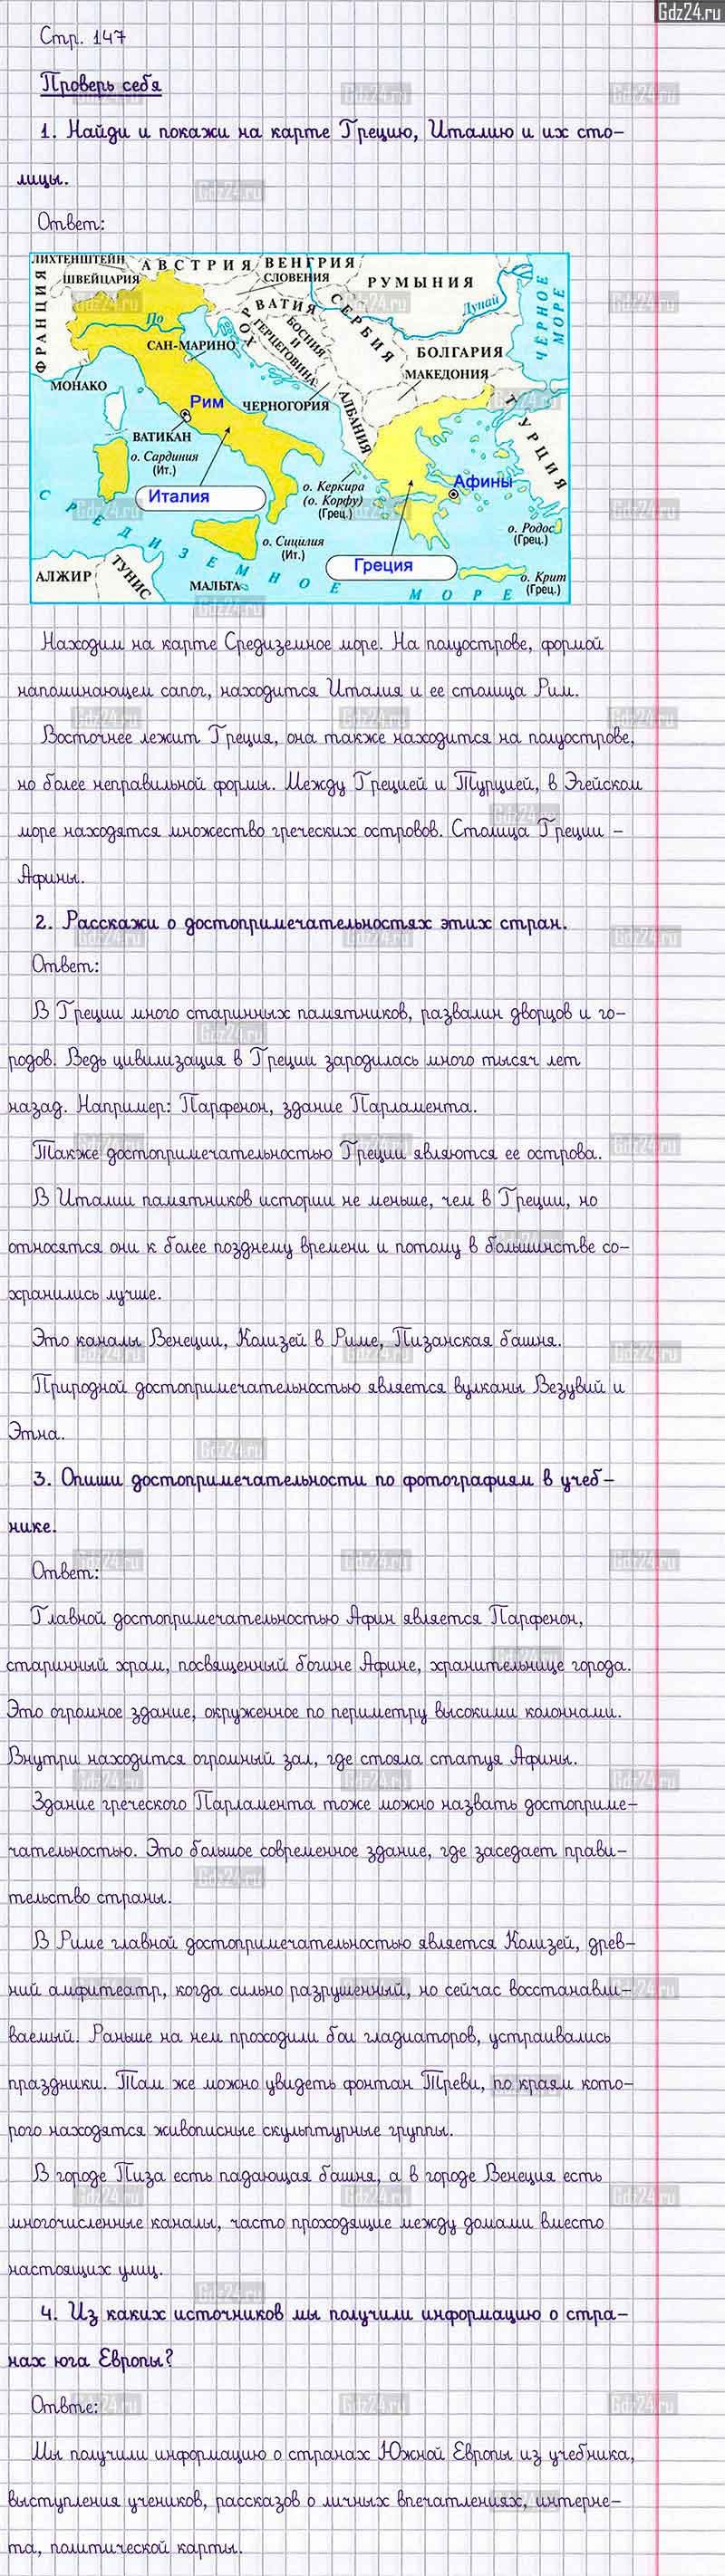 Gdz24.ru
Стр. 147
Проверь себя
1. Найди и покажи на карте Грецию, Италию и их сто-
лицы.
Ответ:
ЛИХТЕНШТЕЙН
АВСТРИЯ
ВЕНГРИЯ
ШВЕЙЦАРИЯ
СЛОВЕНИЯ
РУМЫНИЯ
ФРАНЦИЯ
ХОРВАТИЯ
СЕРБИЯ
Дунай
ЧЕРНОЕ МОРЕ
По
БОСНИЯ И ГЕРЦЕГОВИНА
САН-МАРИНО
БОЛГАРИЯ
МАКЕДОНИЯ
МОНАКО
Рим
ЧЕРНОГОРИЯ
АЛБАНИЯ
ТУРЦИЯ
ВАТИКАН
о. Сардиния
(Ит.)
Италия
о. Керкира
(о. Корфу)
(Грец.)
Афины
о. Родос
(Грец.)
о. Сицилия
(Ит.)
Греция
АЛЖИР
ТУНИС
МАЛЬТА
о. Крит
(Грец.)
СРЕДИЗЕМНОЕ МОРЕ
Находим на карте Средиземное море. На полуострове, формой
напоминающем сапог, находится Италия и ее столица Рим.
Восточнее лежит Греция, она также находится на полуострове,
но более неправильной формы. Между Грецией и Турцией, в Эгейском
море находятся множество греческих островов. Столица Греции –
Афины.
2. Расскажи о достопримечательностях этих стран.
Ответ:
В Греции много старинных памятников, развалин дворцов и го-
родов. Ведь цивилизация в Греции зародилась много тысяч лет
назад. Например: Парфенон, здание Парламента.
Также достопримечательностью Греции являются ее острова.
В Италии памятников истории не меньше, чем в Греции, но
относятся они к более позднему времени и потому в большинстве со-
хранились лучше.
Это каналы Венеции, Колизей в Риме, Пизанская башня.
Природной достопримечательностью является вулканы Везувий и
Этна.
3. Опиши достопримечательности по фотографиям в учеб-
нике.
Ответ:
Главной достопримечательностью Афин является Парфенон,
старинный храм, посвященный богине Афине, хранительнице города.
Это огромное здание, окруженное по периметру высокими колоннами.
Внутри находится огромный зал, где стояла статуя Афины.
Здание греческого Парламента тоже можно назвать достоприме-
чательностью. Это большое современное здание, где заседает прави-
тельство страны.
В Риме главной достопримечательностью является Колизей, древ-
ний амфитеатр, когда сильно разрушенный, но сейчас восстанавли-
ваемый. Раньше на нем проходили бои гладиаторов, устраивались
праздники. Там же можно увидеть фонтан Треви, по краям кото-
рого находятся живописные скульптурные группы.
В городе Пиза есть падающая башня, а в городе Венеция есть
многочисленные каналы, часто проходящие между домами вместо
настоящих улиц.
4. Из каких источников мы получили информацию о стра-
нах юга Европы?
Отвте:
Мы получили информацию о странах Южной Европы из учебника,
выступления учеников, рассказов о личных впечатлениях, интерне-
та, политической карты.